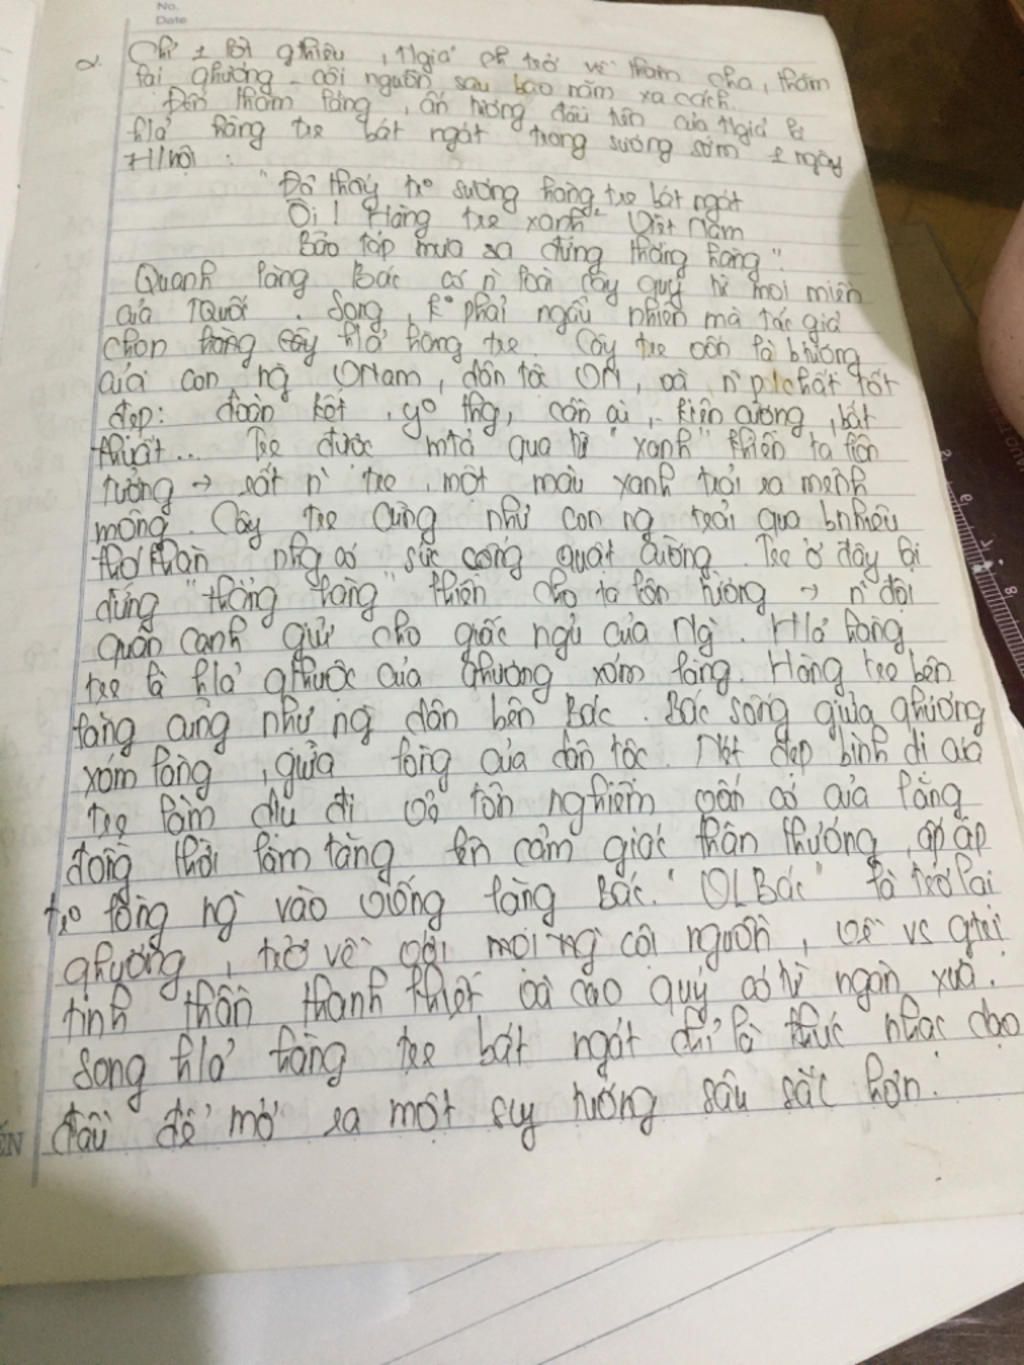 No.
Date
Chỉ 1 lời giới thiệu, t/giả trở về thăm cha, thăm
lại qhương - cội nguồn sau bao năm xa cách.
Đến thăm lăng, ấn tượng đầu tiên của t/giả là
h/ả hàng tre bát ngát trong sương sớm 1 ngày
HNội :
"Đã thấy trº sương hàng tre bát ngát
Ôi! Hàng tre xanh Việt Nam
Bão táp mưa sa đứng thẳng hàng".
Quanh lăng Bác có n` loài cây quý từ mọi miền
của TQuốc. Song, kº phải ngẫu nhiên mà tác giả
chọn h/ả hàng tre. Cây tre vốn là btượng
của con ng VNam, dân tộc VN, với n` p/chất tốt
đẹp: đoàn kết, yº thg, cần cù, kiên cường, bất
khuất... Tre được mtả qua từ "xanh" khiến ta liên
tưởng → rất n` tre, một màu xanh trải ra mênh
mông. Cây tre cũng như con ng trải qua bnhiêu
khó khăn nhg có sức sống quật cường. Tre ở đây lại
đứng "thẳng hàng" khiến cho ta liên tưởng → n` đội
quân canh giữ cho giấc ngủ của Ng`. H/ả hàng
tre là h/ả qthuộc của qhương xóm làng. Hàng tre bên
lăng cũng như ng dân bên Bác. Bác sống giữa qhương
xóm làng, giữa lòng của dân tộc. Nét đẹp bình dị của
tre làm dịu đi vẻ tôn nghiêm vốn có của lăng
đồng thời làm tăng lên cảm giác thân thương, ấm áp
trº lòng ng` vào viếng lăng Bác. "VLBác" là trở lại
qhương, trở về với mọi ng cội nguồn, về vs
tình thần thanh khiết và cao quý có từ ngàn xưa.
Song h/ả hàng tre bát ngát chỉ là khúc nhạc dạo
đầu để mở ra một suy tưởng sâu sắc hơn.